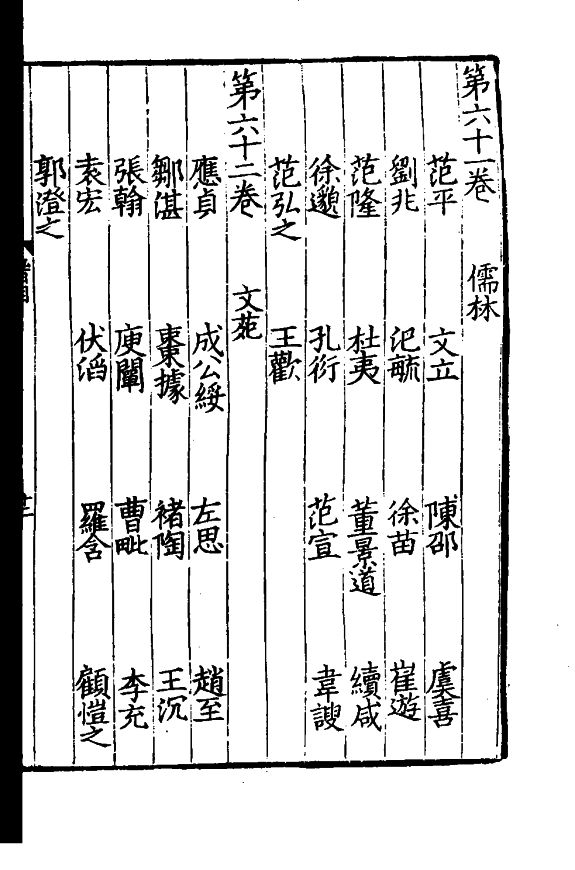 第六十一卷 儒林
范平 文立 陳邵 虞喜
劉兆 氾毓 徐苗 崔遊
范隆 杜夷 董景道 續咸
徐邈 孔衍 范宣 韋謏
范弘之 王歡
第六十二卷 文苑
應貞 成公綏 左思 趙至
鄒湛 棗據 褚陶 王沉
張翰 庾闡 曹毗 李充
袁宏 伏滔 羅含 顧愷之
郭澄之